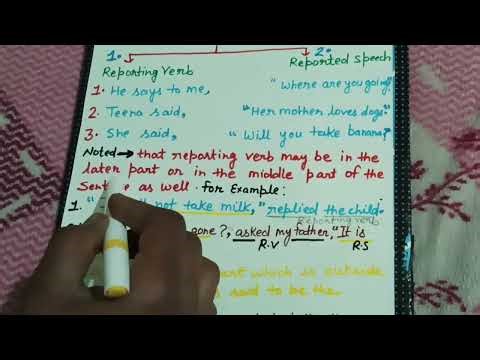 1. 2.
Reporting Verb Reported Speech
1. He says to me, "where are you going?"
2. Teena said, "Her mother loves dogs."
3. She said, "Will you take banana?"
Noted → that reporting verb may be in the
later part or in the middle part of the
as well. for Example:
1. " not take milk," replied the child.
Reporting verb
gone?, asked my father, "It is
R.V R.S
which is outside
said to be the